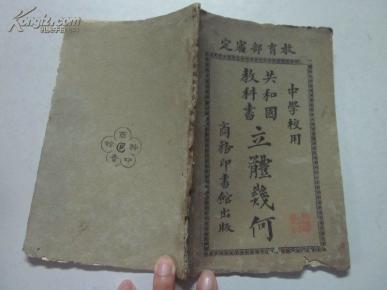 教育部審定
中學校用
共和國
教科書
立體幾何
商務印書館出版
商
務
印
書
館